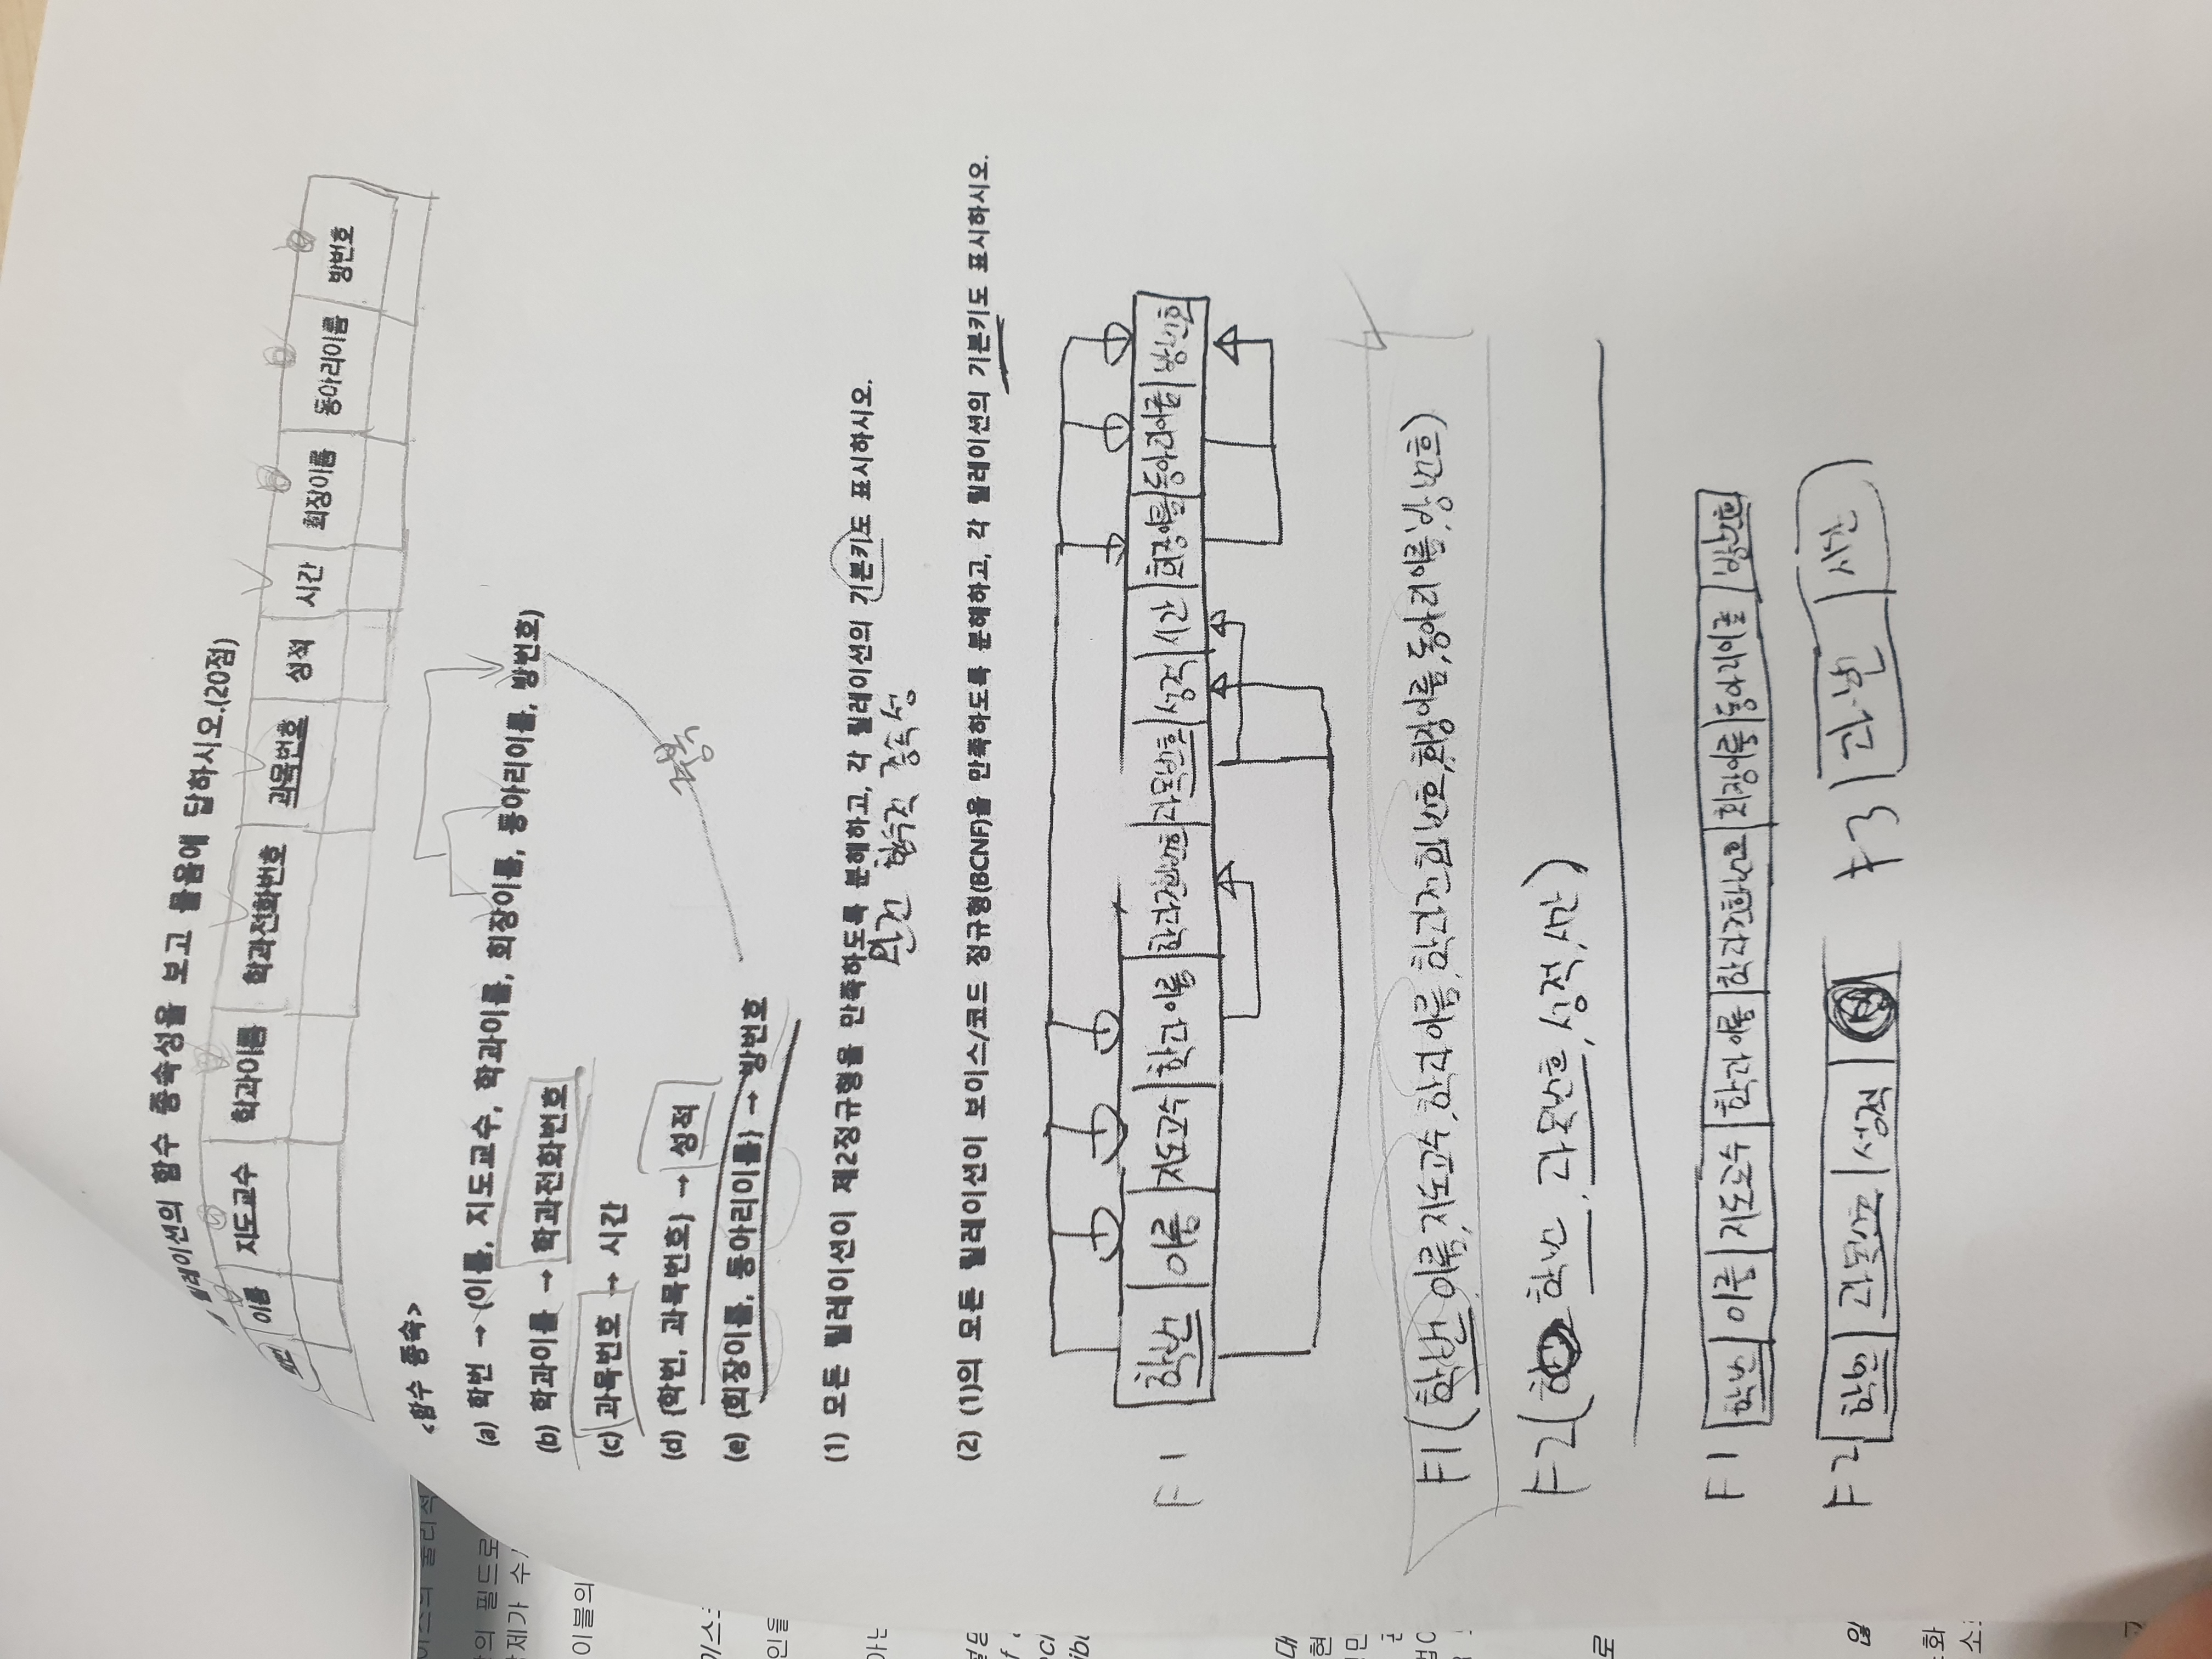 릴레이션의 함수 종속성을 보고 물음에 답하시오.(20점)
학번 이름 지도교수 학과이름 학과전화번호 과목번호 성적 시간 회장이름 동아리이름 방번호
<함수 종속>
(a) 학번 → (이름, 지도교수, 학과이름, 회장이름, 동아리이름, 방번호)
(b) 학과이름 → 학과전화번호
(c) 과목번호 → 시간
(d) {학번, 과목번호} → 성적
중복
(e) {회장이름, 동아리이름} → 방번호
(1) 모든 릴레이션이 제2정규형을 만족하도록 분해하고, 각 릴레이션의 기본키도 표시하시오.
완전 함수적 종속성
(2) (1)의 모든 릴레이션이 보이스/코드 정규형(BCNF)을 만족하도록 분해하고, 각 릴레이션의 기본키도 표시하시오.
F1 학번 이름 지도교수 학과이름 학과전화번호 과목번호 성적 시간 회장이름 동아리이름 방번호
F1(학번, 이름, 지도교수, 학과이름, 학과전화번호, 회장이름, 동아리이름, 방번호)
F2( 학번, 과목번호, 성적, 시간)
F1 학번 이름 지도교수 학과이름 학과전화번호 회장이름 동아리이름 방번호
F2 학번 과목번호 성적 F3 과번 시간